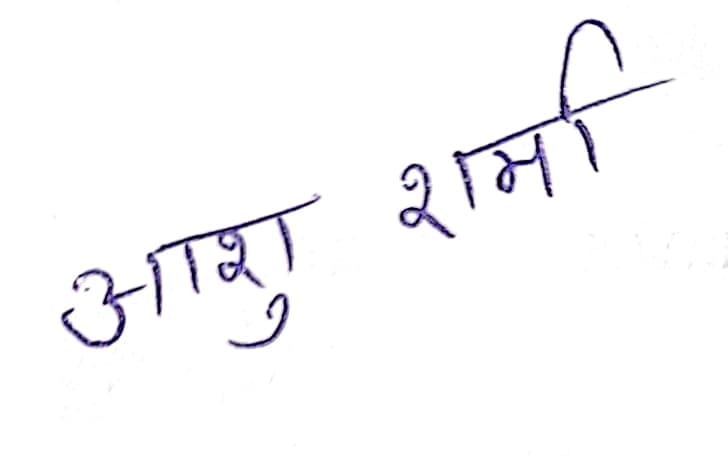 आशु शर्मा